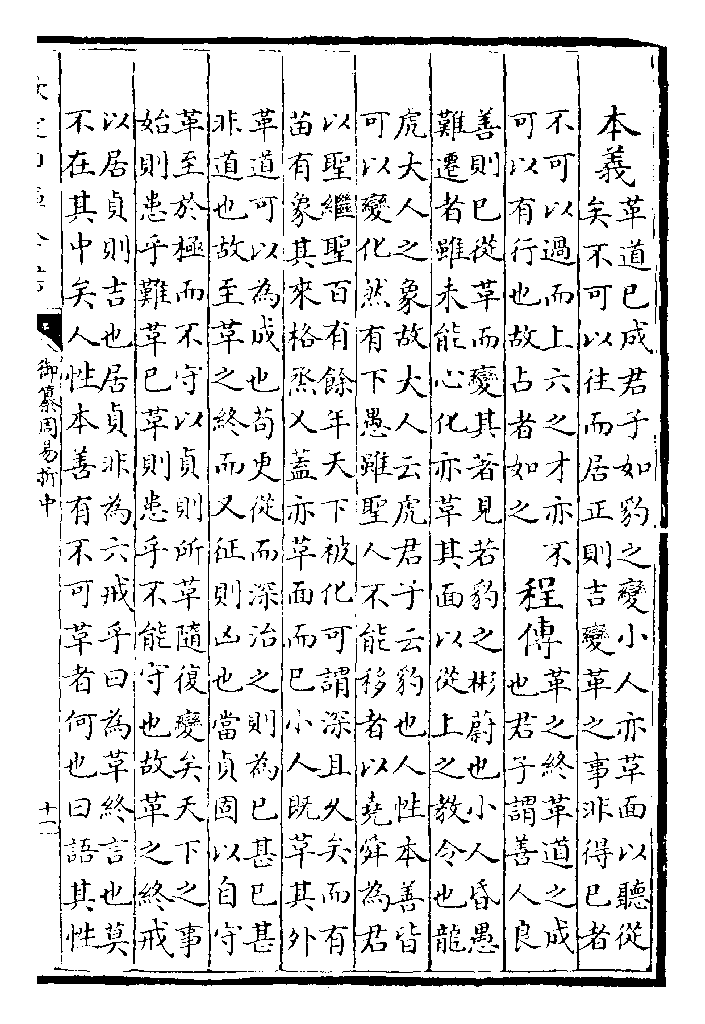 本義
革道已成君子如豹之變小人亦革面以聽從
矣不可以往而居正則吉變革之事非得已者
不可以過而上六之才亦不
可以有行也故占者如之
程傳
革之終革道之成
也君子謂善人良
善則已從革而變其著見若豹之彬蔚也小人昏愚
難遷者雖未能心化亦革其面以從上之教令也龍
虎大人之象故大人云虎君子云豹也人性本善皆
可以變化然有下愚雖聖人不能移者以堯舜為君
以聖繼聖百有餘年天下被化可謂深且久矣而有
苗有象其來格烝乂蓋亦革面而已小人既革其外
革道可以為成也苟更從而深治之則為已甚已甚
非道也故至革之終而又征則凶也當貞固以自守
革至於極而不守以貞則所革隨復變矣天下之事
始則患乎難革已革則患乎不能守也故革之終戒
以居貞則吉也居貞非為六戒乎曰為革終言也莫
不在其中矣人性本善有不可革者何也曰語其性
御纂周易折中
十一